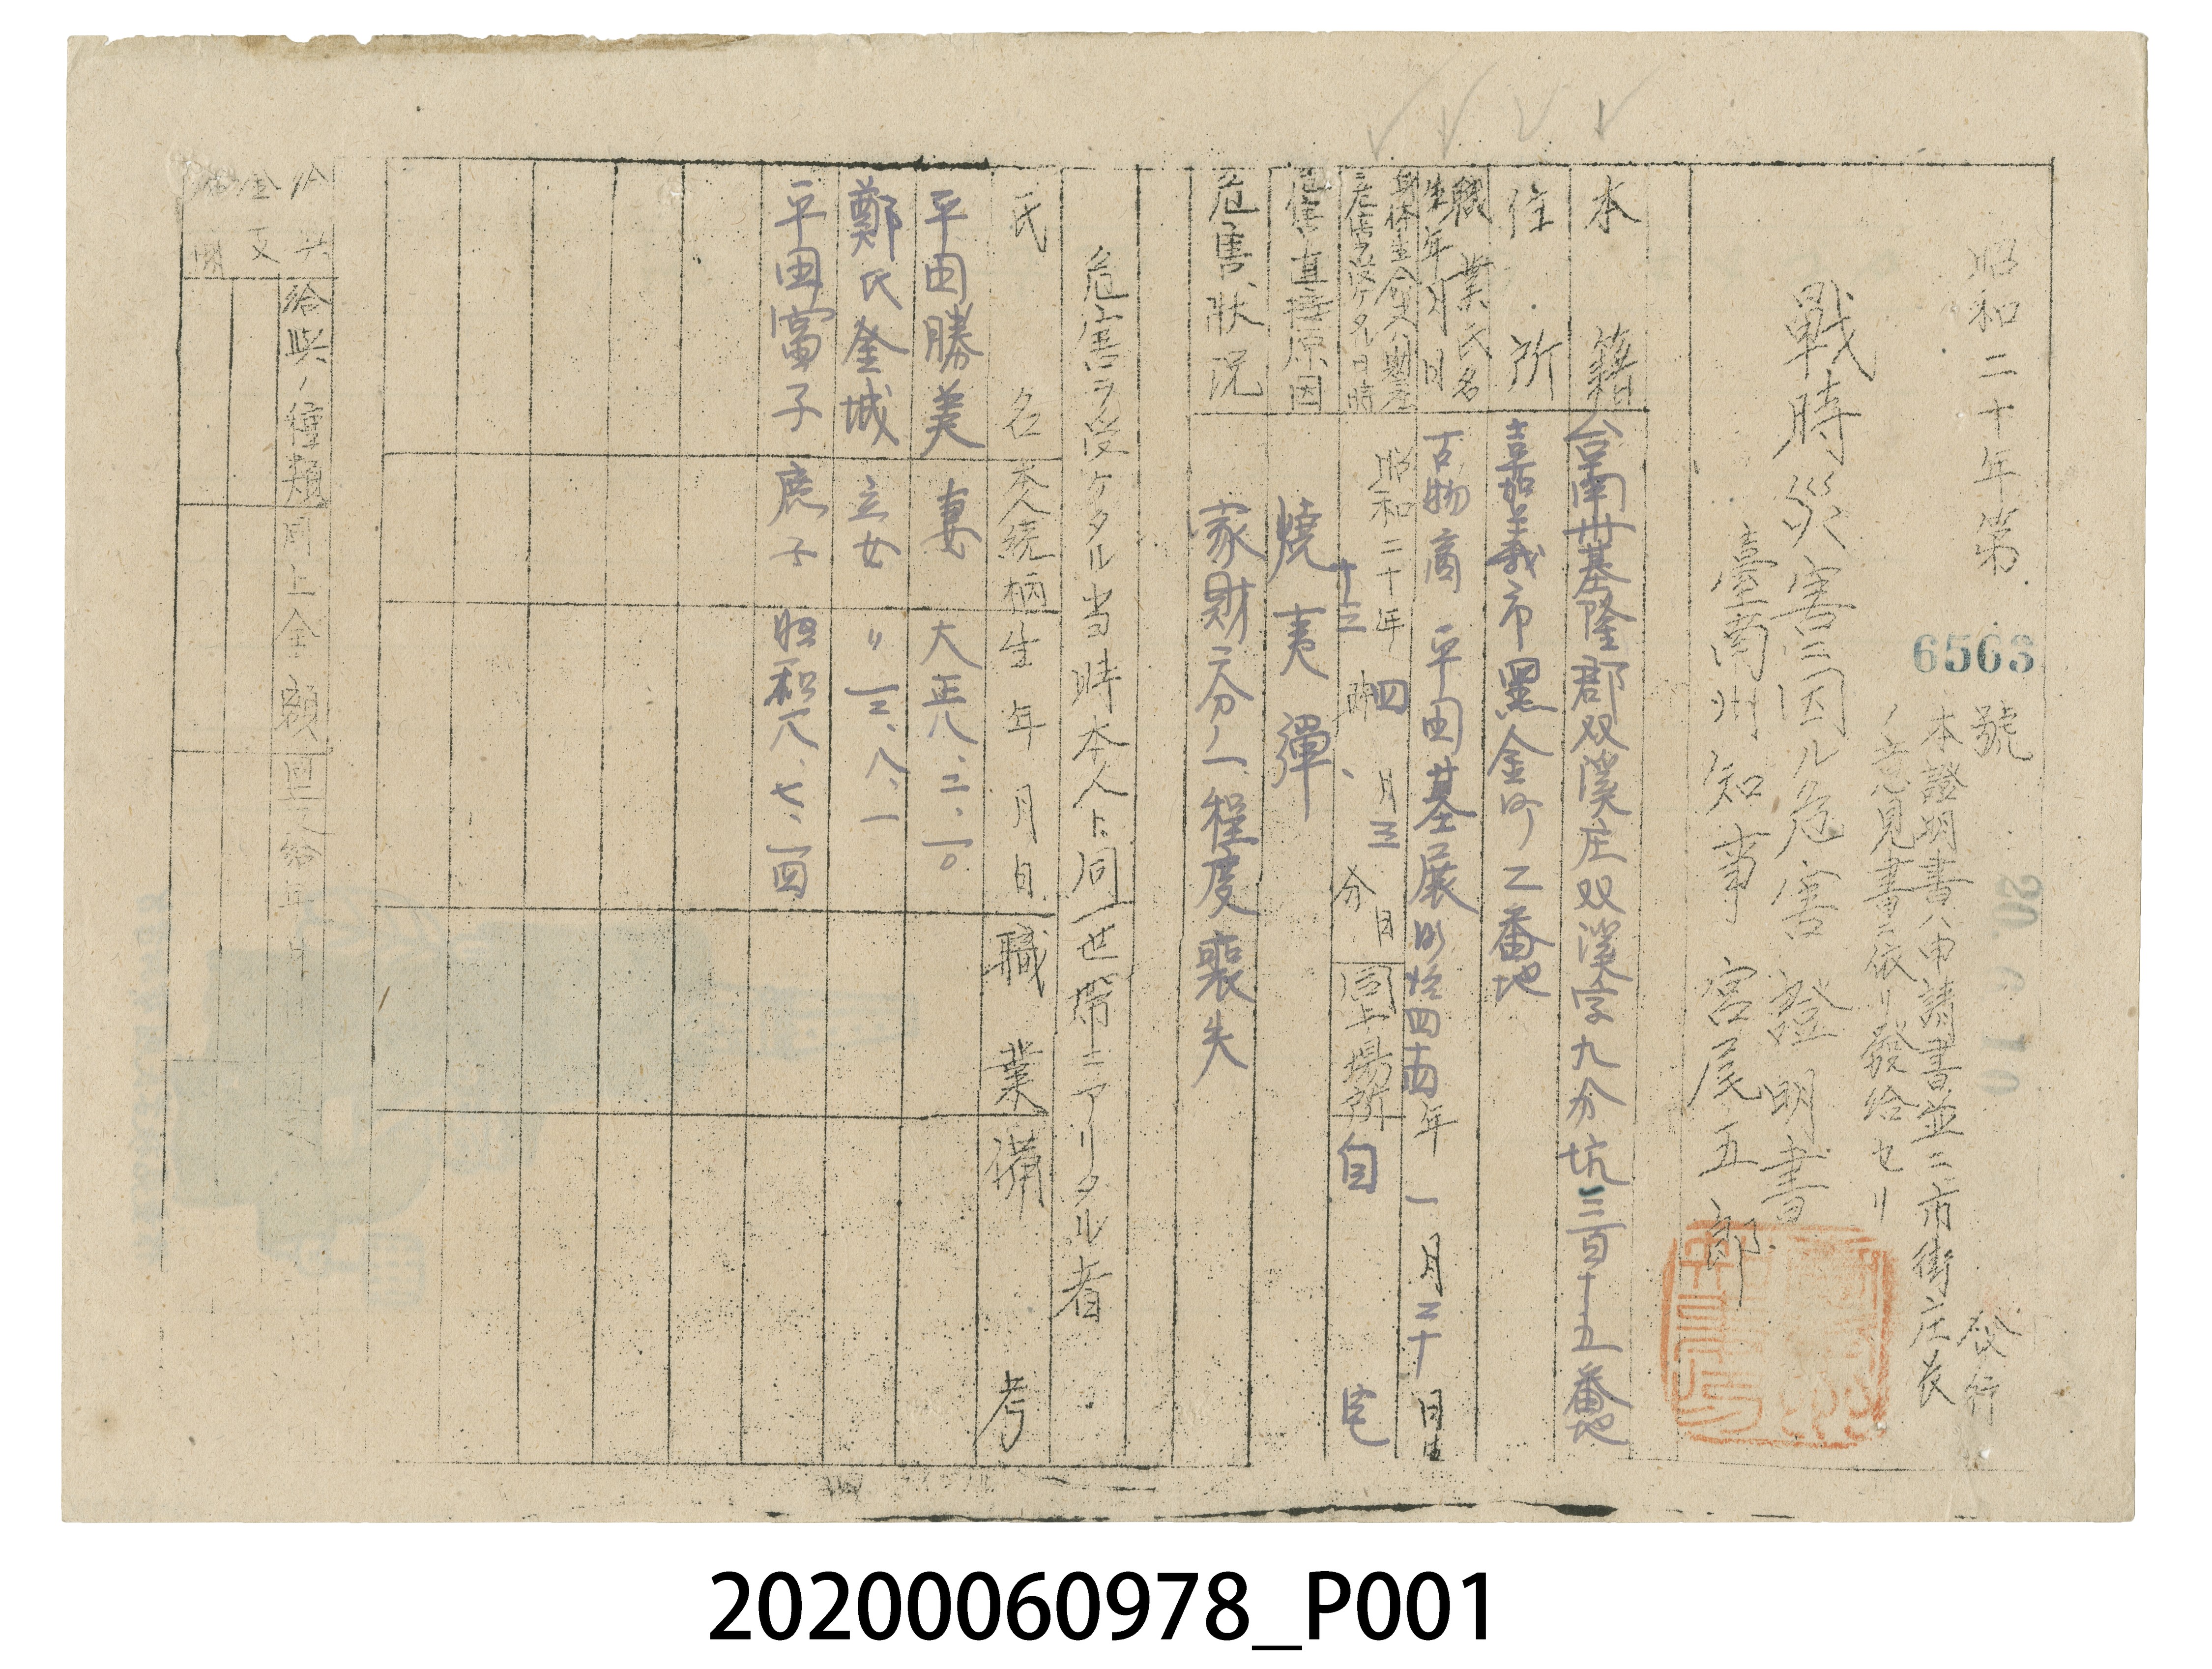 昭和二十年第 6563 號 發行
本證明書ハ申請書並ニ市街庄長
ノ意見書ニ依リ發給セリ
戰時災害ニ因ル危害證明書
臺南州知事 宮尾五郎
本籍 台南州基隆郡双溪庄双溪字九分坑三百十五番地
住所 嘉義市黑金町乙番地
職業氏名 古物商 平田基展
生年月日 年一月三十日
危害ヲ受ケタル日時 昭和二十年四月三日
十三時 分
同上場所 自宅
危害直接原因 燒夷彈
危害狀況 家財二分ノ一程度喪失
危害ヲ受ケタル当時本人ト同一世帶ニアリタル者
氏名 本人続柄 生年月日 職業 備考
平田勝美 妻 大正八、二、一〇
鄭氏金城 〃一三、八、一
平田富子 庶子 昭和一八、七、一四
給與ノ種類 同上金額
20200060978_P001